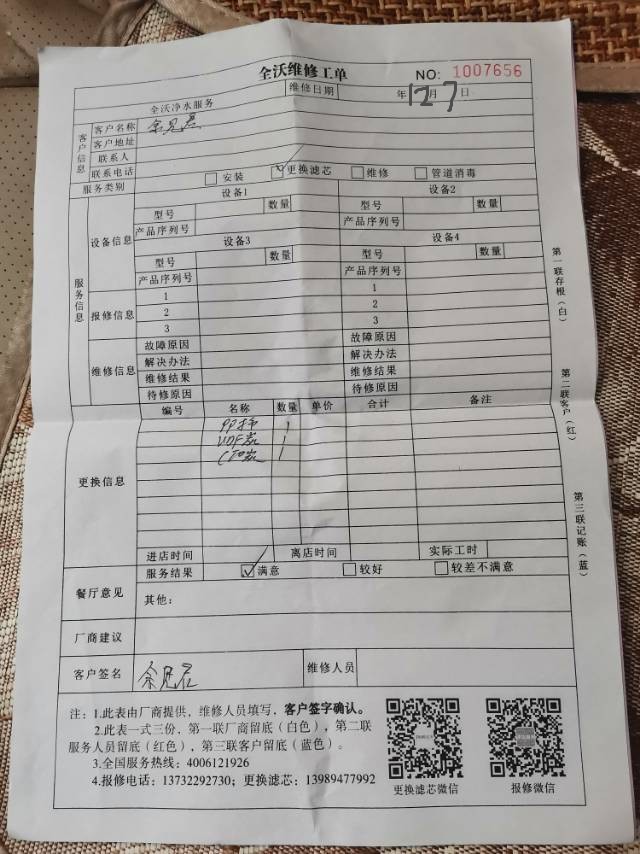 全沃维修工单
NO: 1007656
全沃净水服务 维修日期 年12月7日
客户信息
客户名称
客户地址
联系人
联系电话
服务类别 安装 更换滤芯 维修 管道消毒
服务信息
设备信息
设备1 设备2
型号 数量 型号 数量
产品序列号 产品序列号
设备3 设备4
型号 数量 型号 数量
产品序列号 产品序列号
报修信息
1 1
2 2
3 3
维修信息
故障原因 故障原因
解决办法 解决办法
维修结果 维修结果
待修原因 待修原因
更换信息
编号 名称 数量 单价 合计 备注
PP棉 1
UDF炭 1
CTO炭 1
进店时间 离店时间 实际工时
餐厅意见
服务结果 满意 较好 较差不满意
其他:
厂商建议
客户签名 维修人员
第一联存根(白)
第二联客户(红)
第三联记账(蓝)
注: 1.此表由厂商提供,维修人员填写,客户签字确认。
2.此表一式三份,第一联厂商留底(白色),第二联
服务人员留底(红色),第三联客户留底(蓝色)。
3.全国服务热线: 4006121926
4.报修电话: 13732292730; 更换滤芯: 13989477992
更换滤芯微信 报修微信